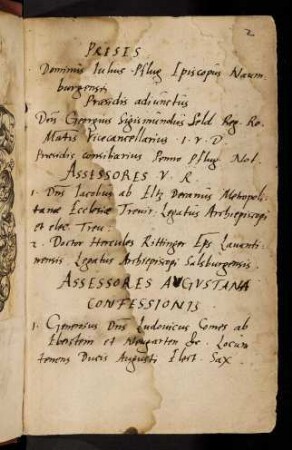 2
PRÆSES
Dominus Iulius Pflug Episcopus Naum-
burgensis
Præsidis adiunctus
Dns Georgius Sigismundus Seld Reg. Ro.
Matis Vicecancellarius . I . V . D
Præsidis consiliarius Pflug Nob.
ASSESSORES V. R
1. Dns Iacobus ab Eltz Decanus Metropoli-
tanæ Ecclesiæ Trevir. Legatus Archiepiscopi
et elec. Trev.
2. Doctor Hercules Rittinger Eps Lavanti-
nensis, Legatus Archiepiscopi Salsburgensis
ASSESSORES AVGVSTANÆ
CONFESSIONIS
1. Generosus Dns Ludovicus Comes ab
Eberstein et Neugarten &c. Locum
tenens Ducis Augusti Elect. Sax